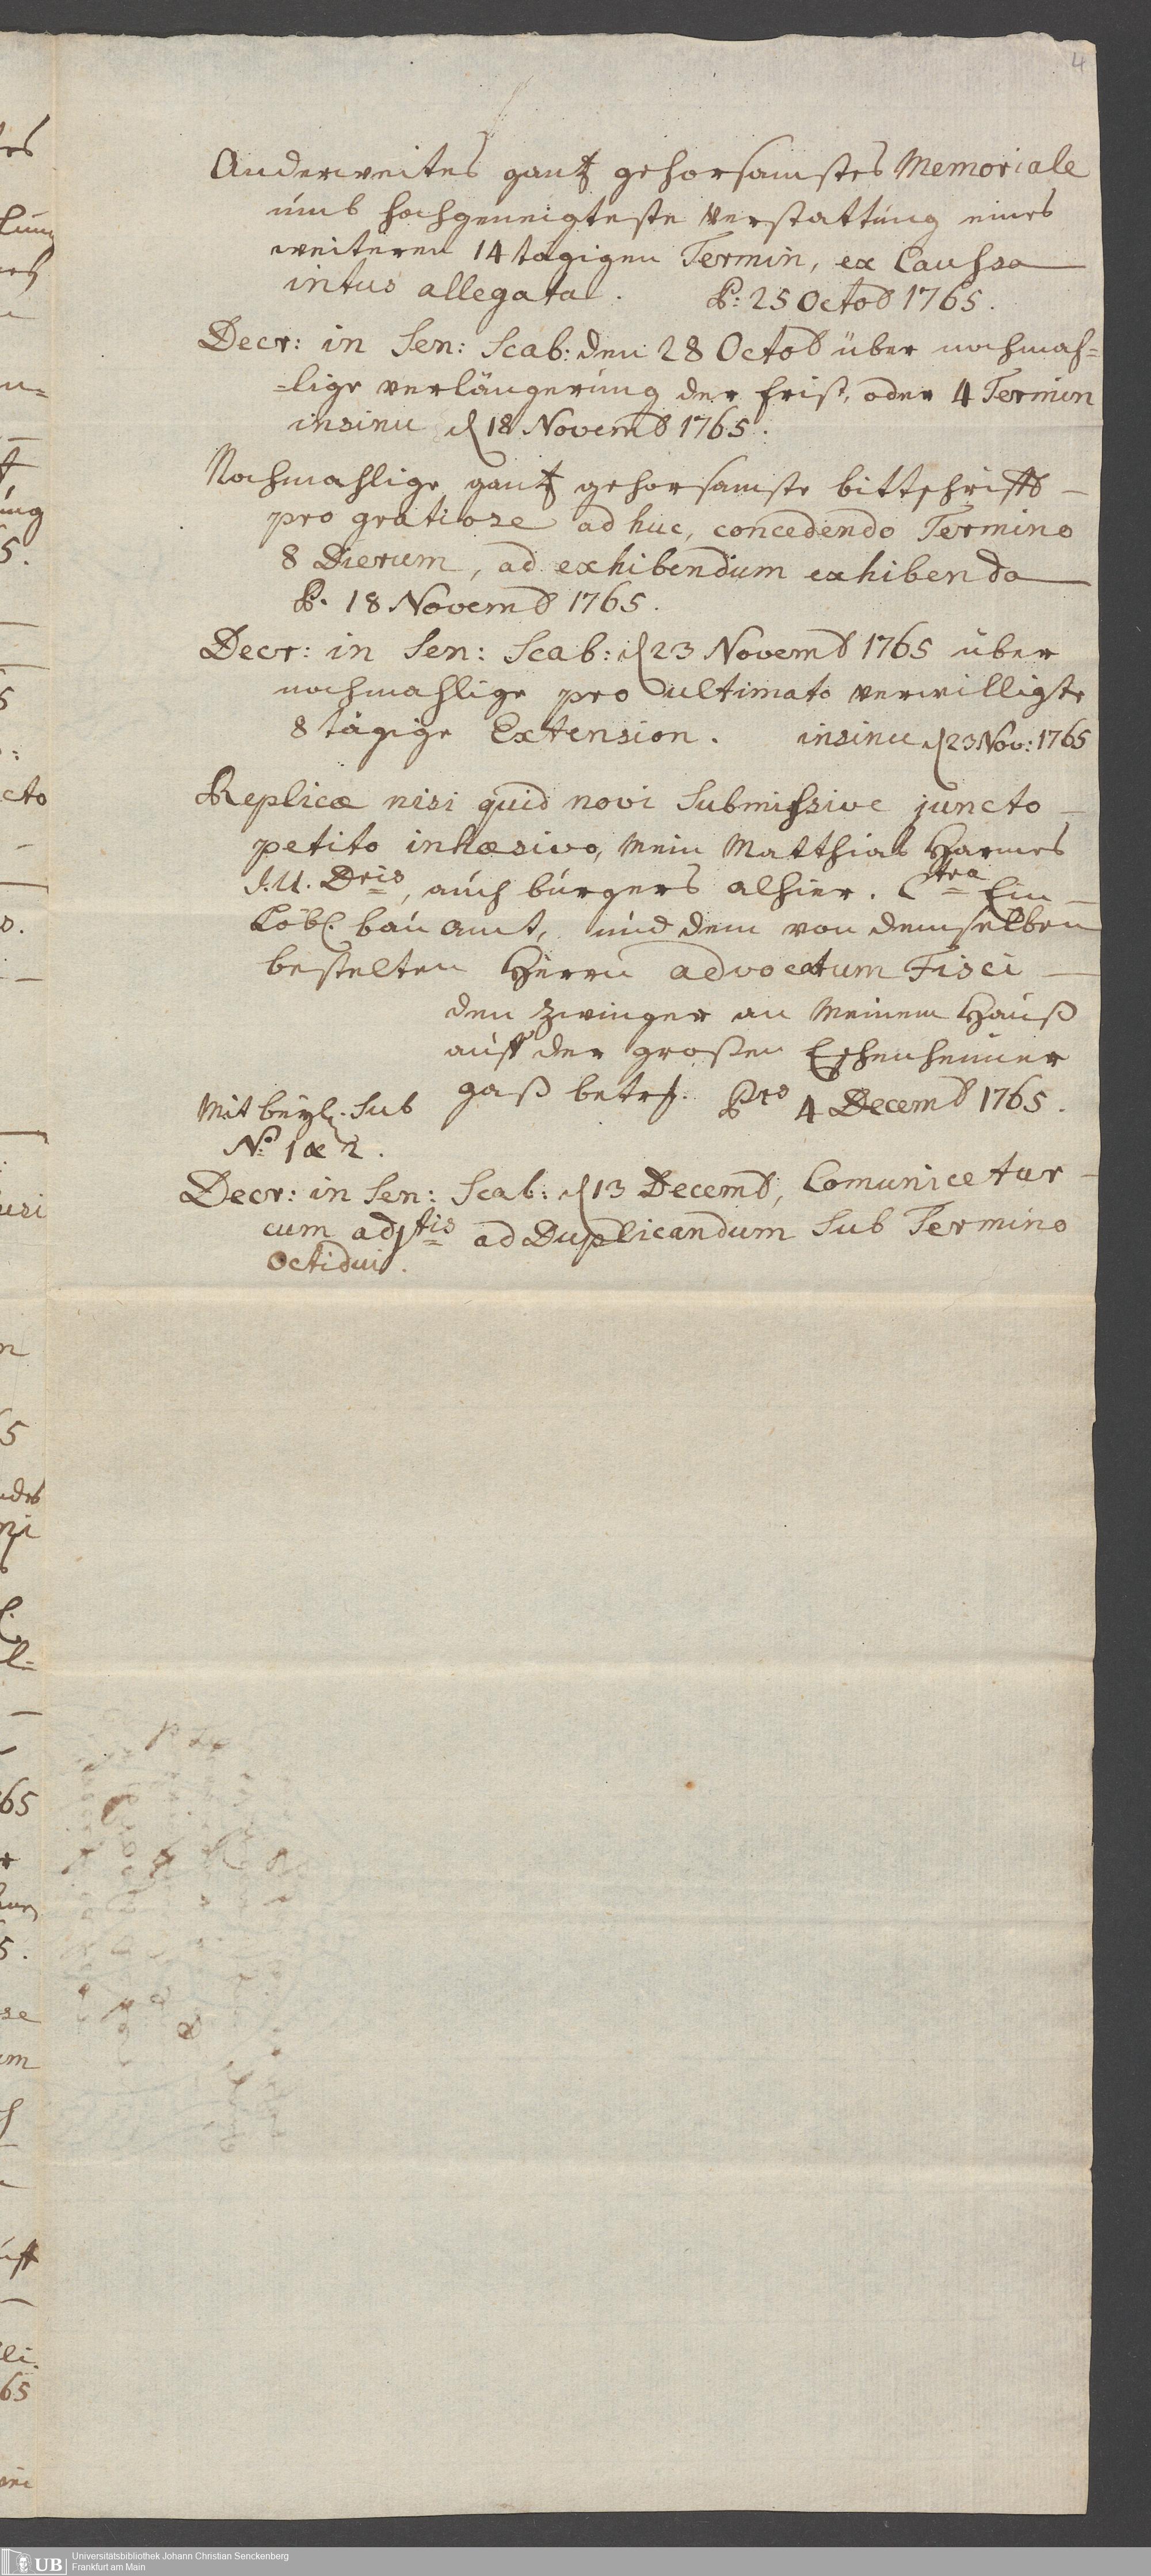 4
Anderweites gantz gehorsamstes Memoriale
umb hochgeneigteste Verstattung eines
weiteren 14 tägigen Termin, ex Caussa
intus allegata. P: 25 Octob 1765.
Decr: in Sen: Scab: den 28 Octob über nochmah=
=lige verlängerung der frist, oder 4 Termin
insinu d 18 Novemb 1765.
Nochmahlige gantz gehorsamste bittschrifft
pro gratiose ad huc, concedendo Termino
8 Dierum, ad exhibendum exhibenda
P. 18 Novemb 1765.
Decr: in Sen: Scab: d 23 Novemb 1765 über
nochmahlige pro ultimato verwilligte
8 tägige Extension. insinu d 23 Nov: 1765
Replicæ nisi quid novi Submissive juncto
petito inhæsivo, Mein Matthias Harmes
J. U. Dris, auch bürgers alhier. Ctra Ein
Löbl. bau amt, und dem von demselben
bestelten Herrn advocatum Fisci
den Zwinger an Meinem Hauß
auff der großen Eschenheimer
gaß betr. Pto 4 Decemb 1765.
Mit beyl. Sub
No 1 & 2.
Decr: in Sen: Scab: d 13 Decemb, Comunicetur
cum adjtis ad Duplicandum Sub Termino
Octidui.
UB Universitätsbibliothek Johann Christian Senckenberg
Frankfurt am Main